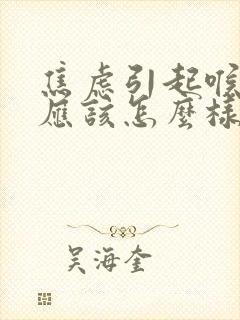 焦虑引起喉
应該怎麼樣
吴海奎